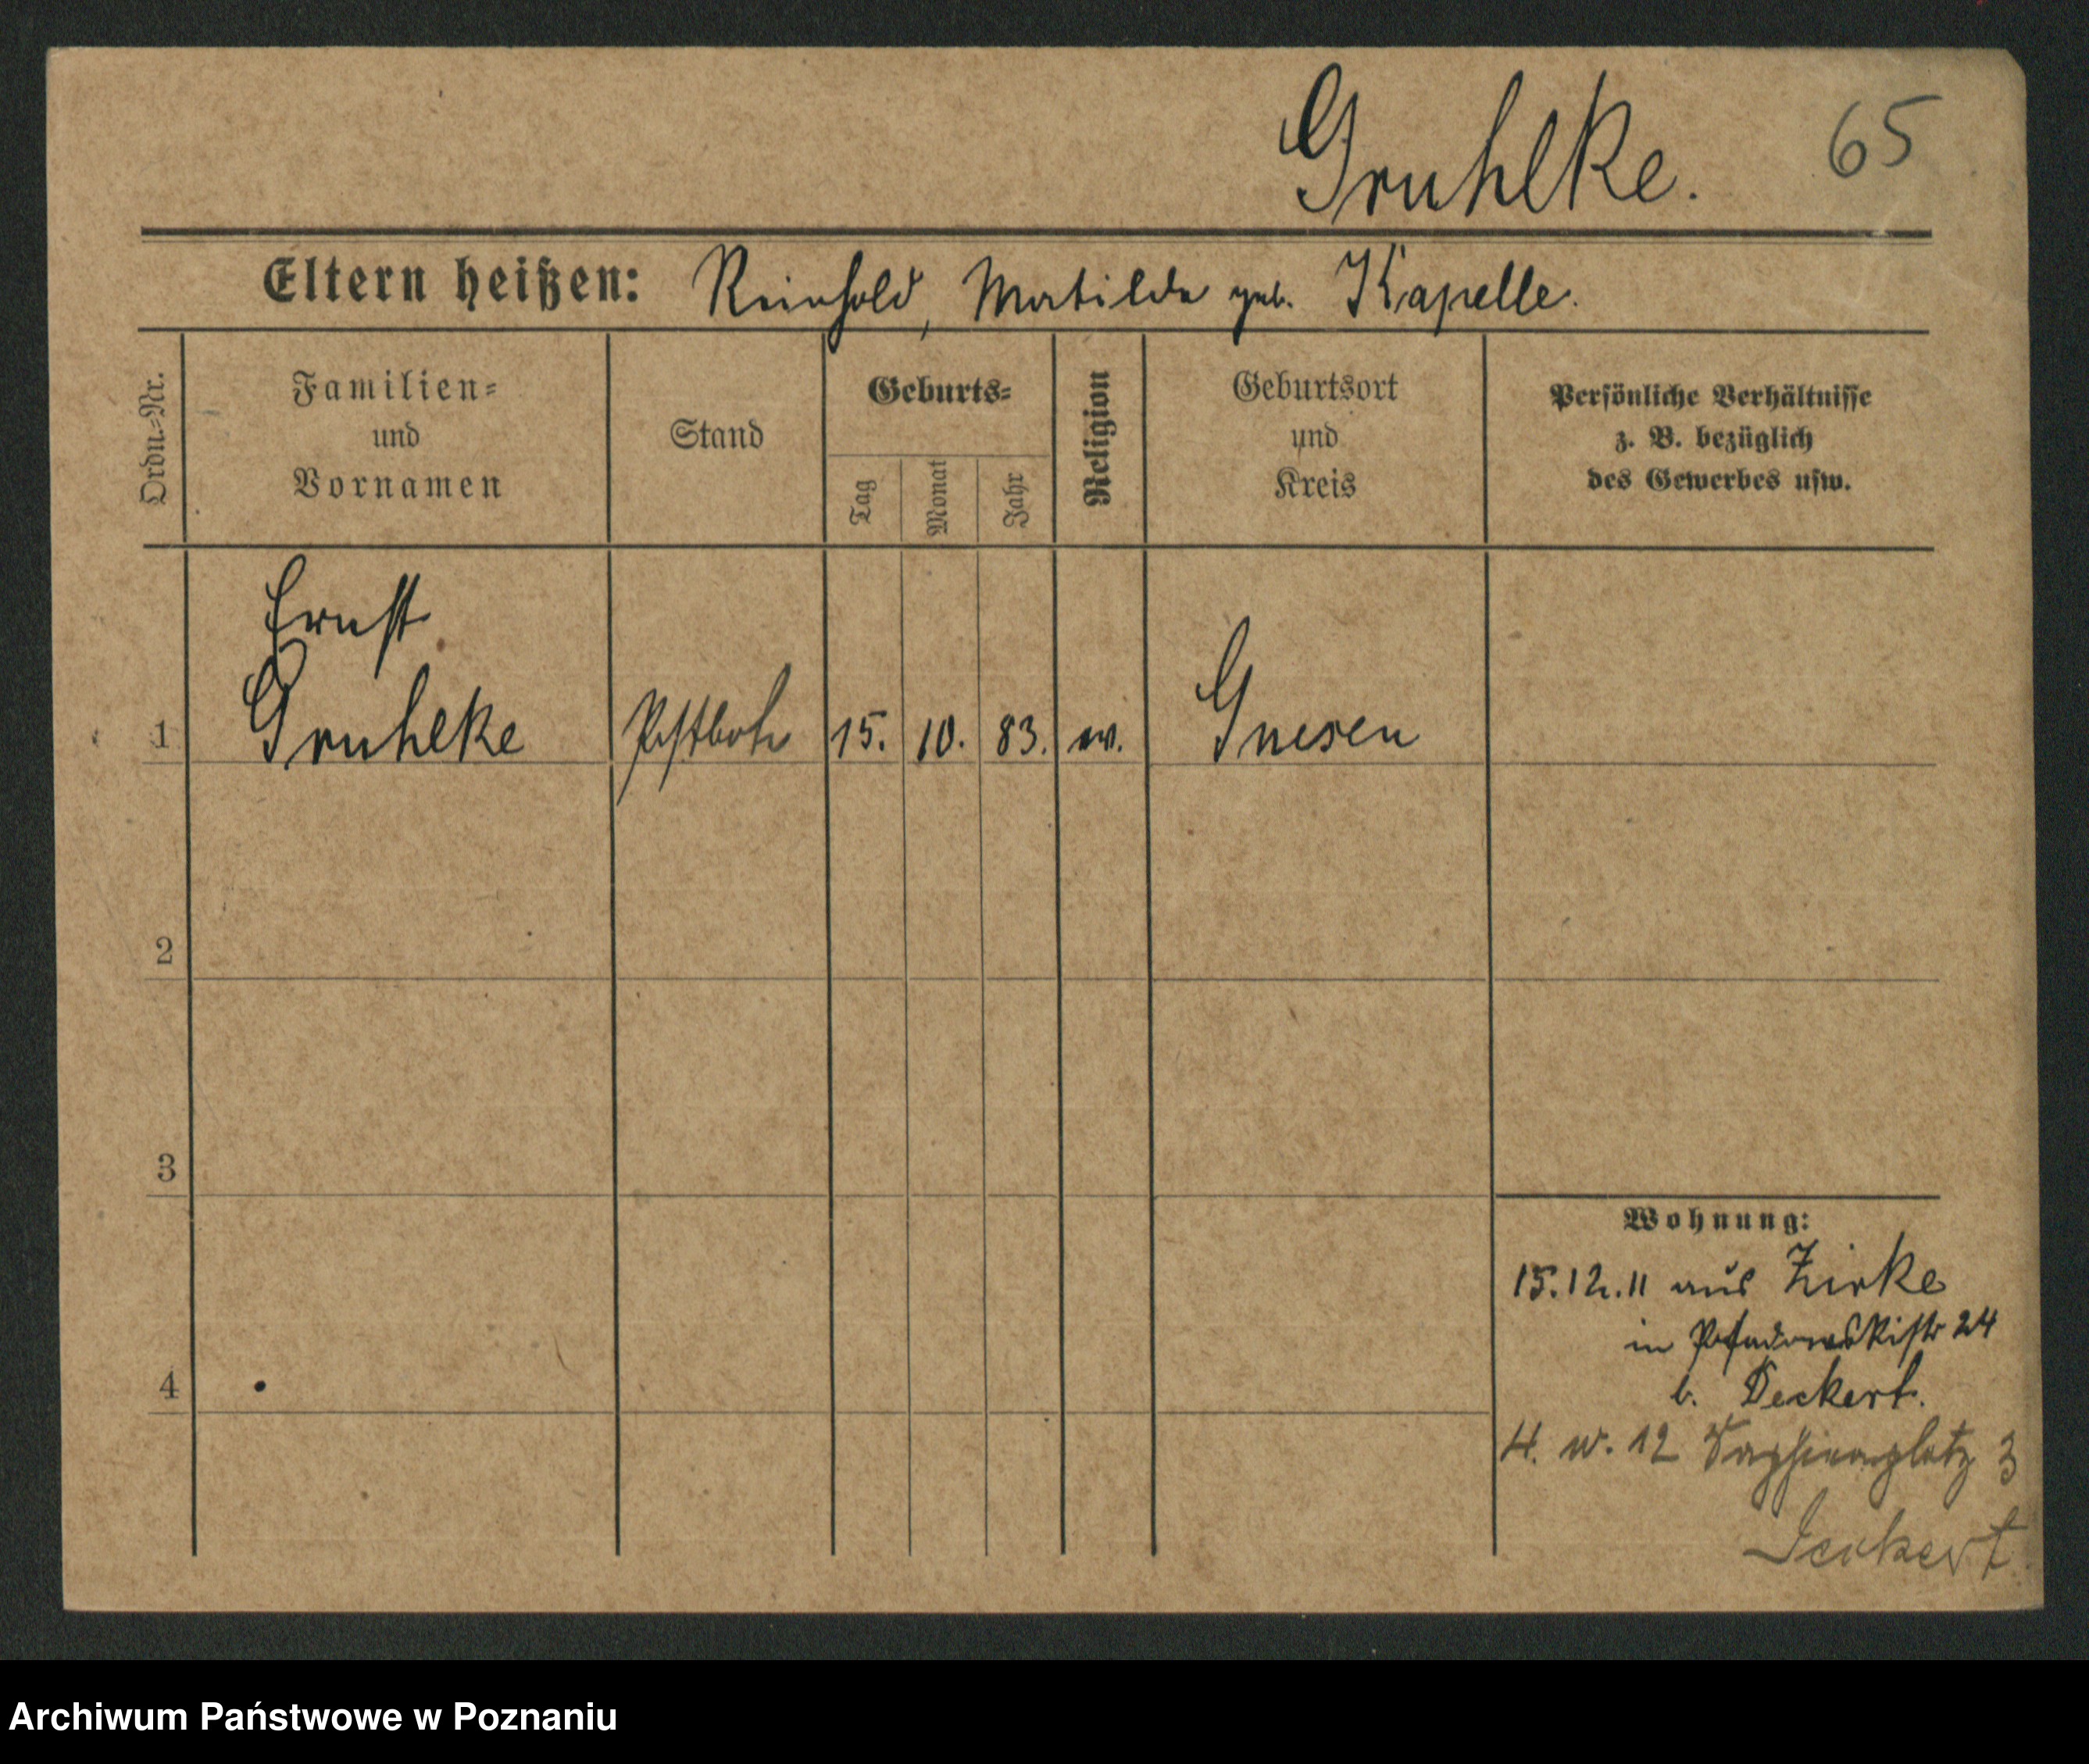 Gruhlke. 65
Eltern heißen: Reinhold, Matilde geb. Kapelle.
Ordn.-Nr.
Familien-
und
Vornamen
Stand
Geburts-
Tag
Monat
Jahr
Religion
Geburtsort
und
Kreis
Persönliche Verhältnisse
z. B. bezüglich
des Gewerbes usw.
Ernst
1 Gruhlke Postbote 15. 10. 83. ev. Gnesen
2
3
Wohnung:
15.12.11 aus Zirke
in Posadowskistr 24
4 b. Deckert.
4. IV. 12 Sapiehaplatz 3
Deckert
Archiwum Państwowe w Poznaniu